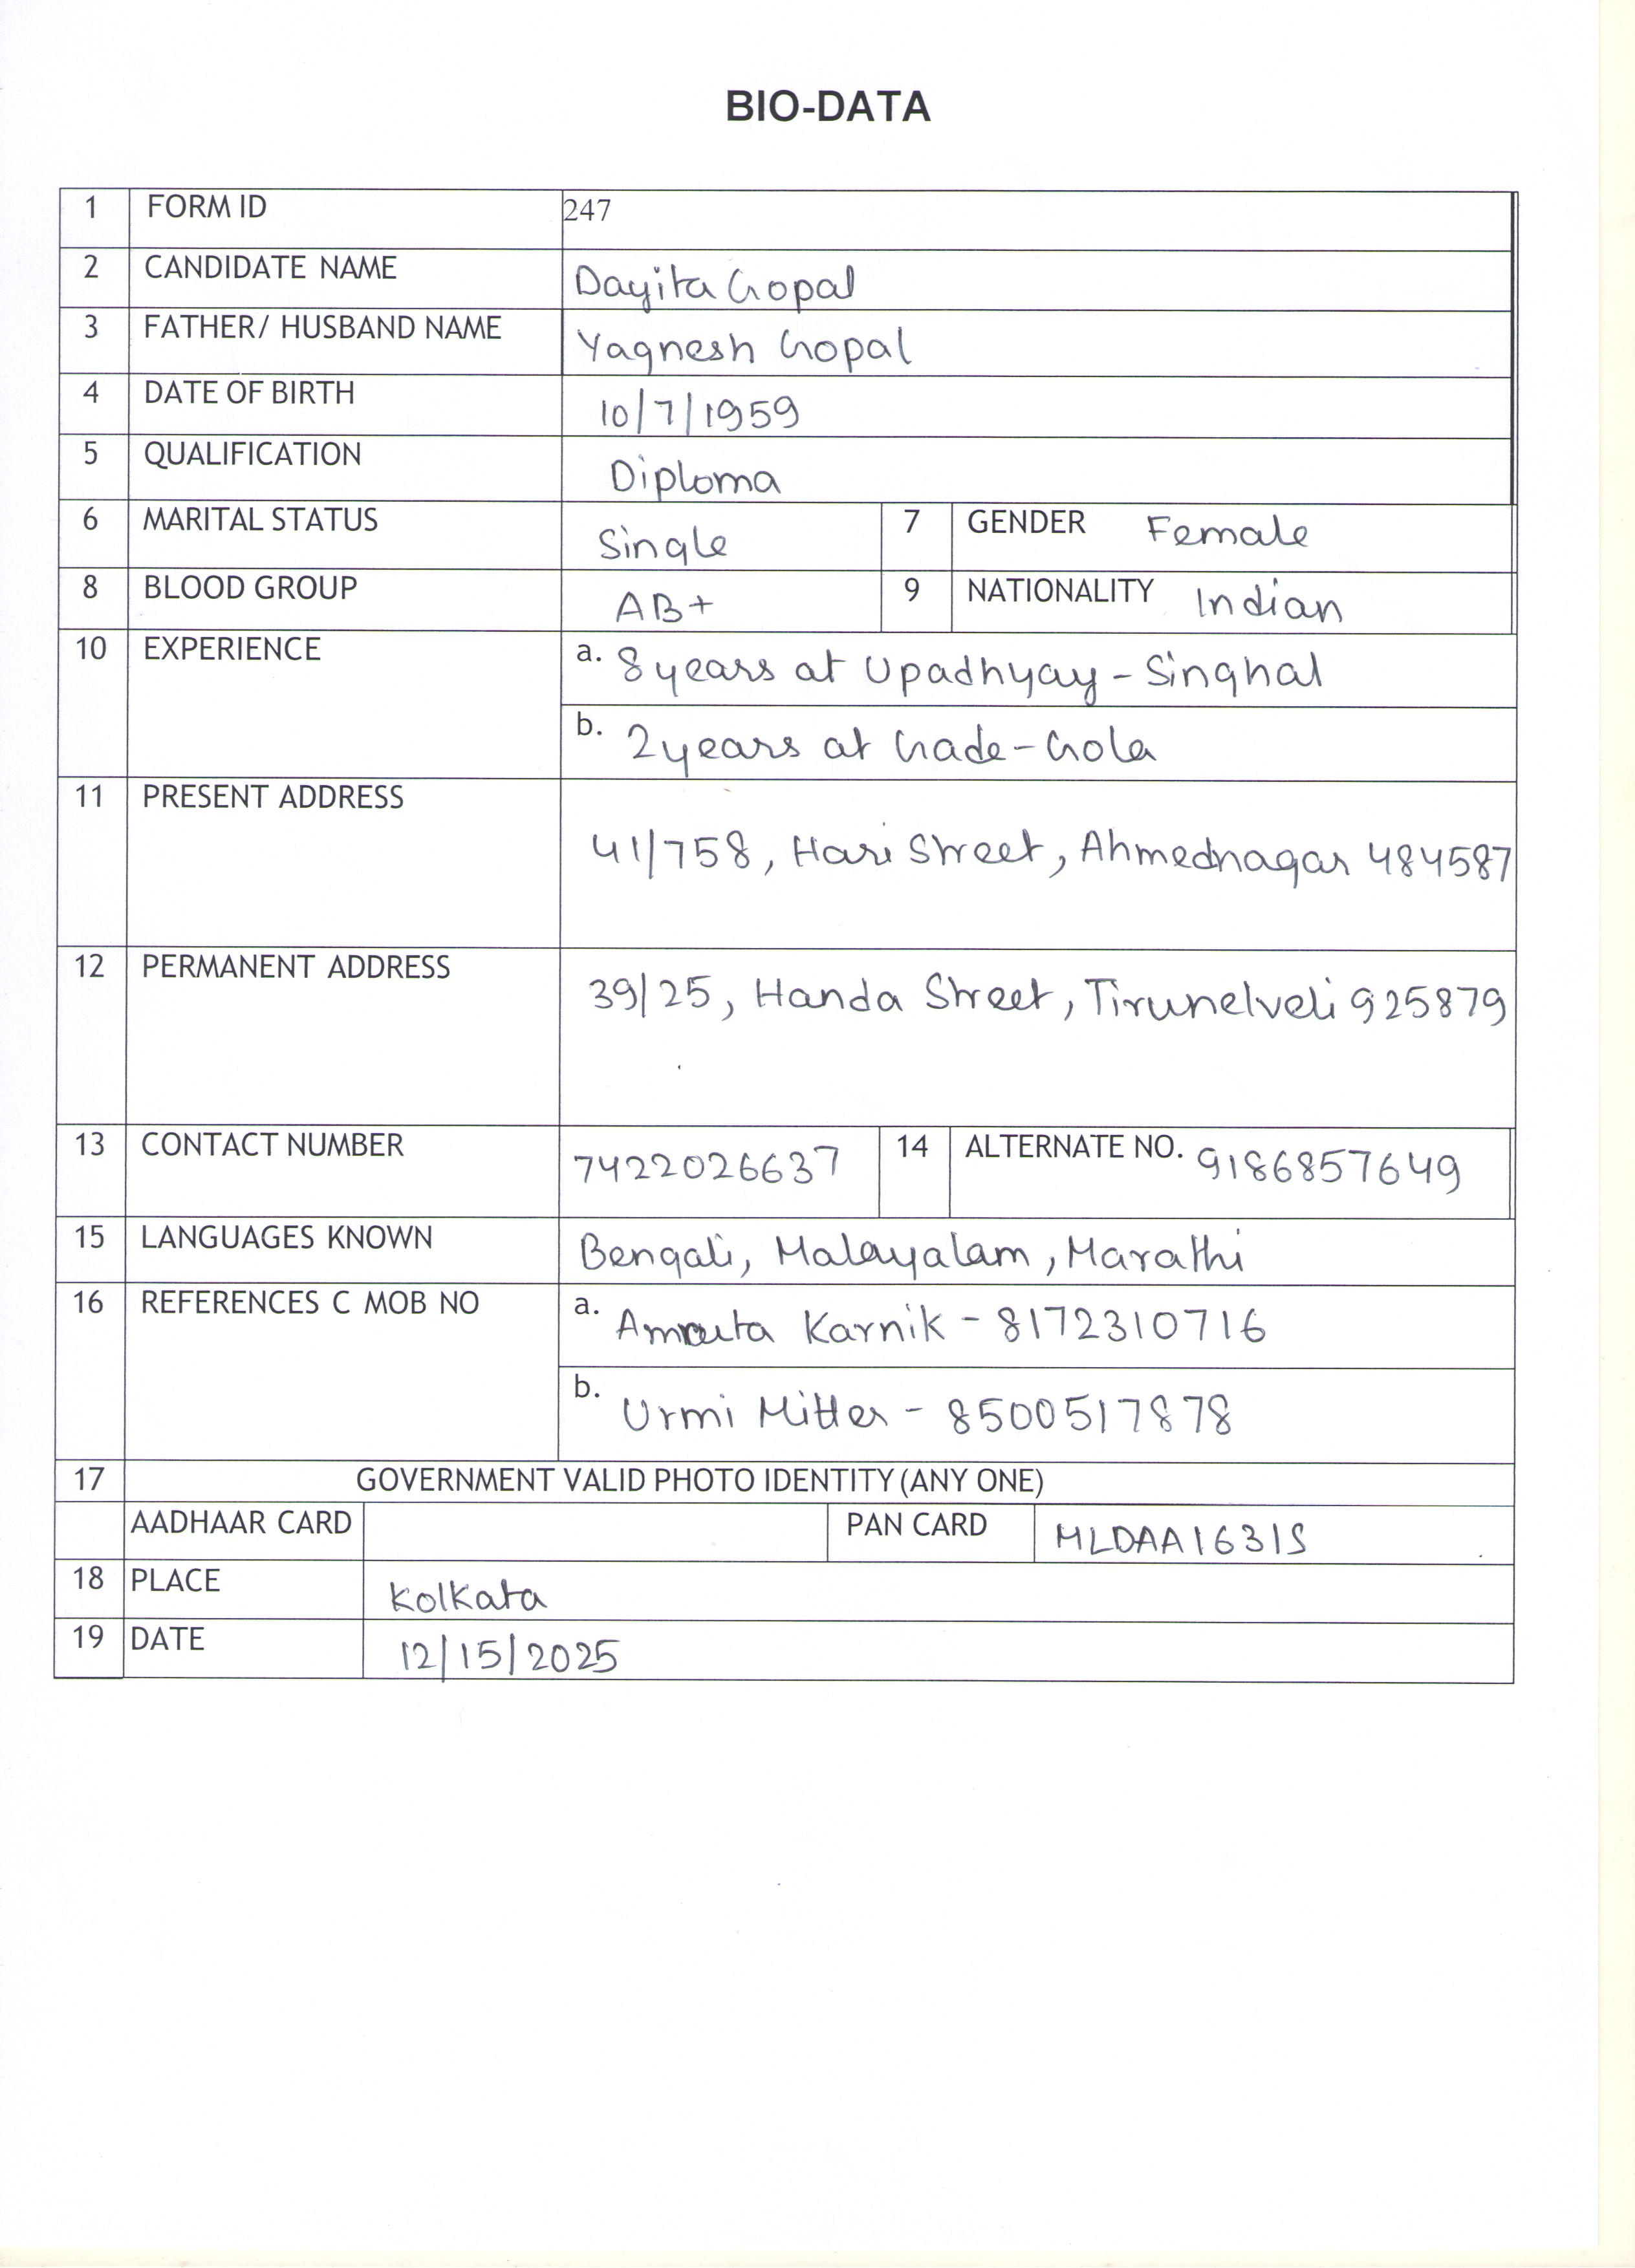 BIO-DATA
1 FORM ID 247
2 CANDIDATE NAME Dayita Gopal
3 FATHER/ HUSBAND NAME Yagnesh Gopal
4 DATE OF BIRTH 10/7/1959
5 QUALIFICATION Diploma
6 MARITAL STATUS Single 7 GENDER Female
8 BLOOD GROUP AB+ 9 NATIONALITY Indian
10 EXPERIENCE a. 8 years at Upadhyay - Singhal
b. 2 years at Gade - Gola
11 PRESENT ADDRESS 41/758, Hari Street, Ahmednagar 484587
12 PERMANENT ADDRESS 39/25, Handa Street, Tirunelveli 925879
13 CONTACT NUMBER 7422026637 14 ALTERNATE NO. 9186857649
15 LANGUAGES KNOWN Bengali, Malayalam, Marathi
16 REFERENCES C MOB NO a. Karnik - 8172310716
b. Urmi Mitter - 8500517878
17 GOVERNMENT VALID PHOTO IDENTITY (ANY ONE)
AADHAAR CARD PAN CARD MLDAA1631S
18 PLACE Kolkata
19 DATE 12/15/2025